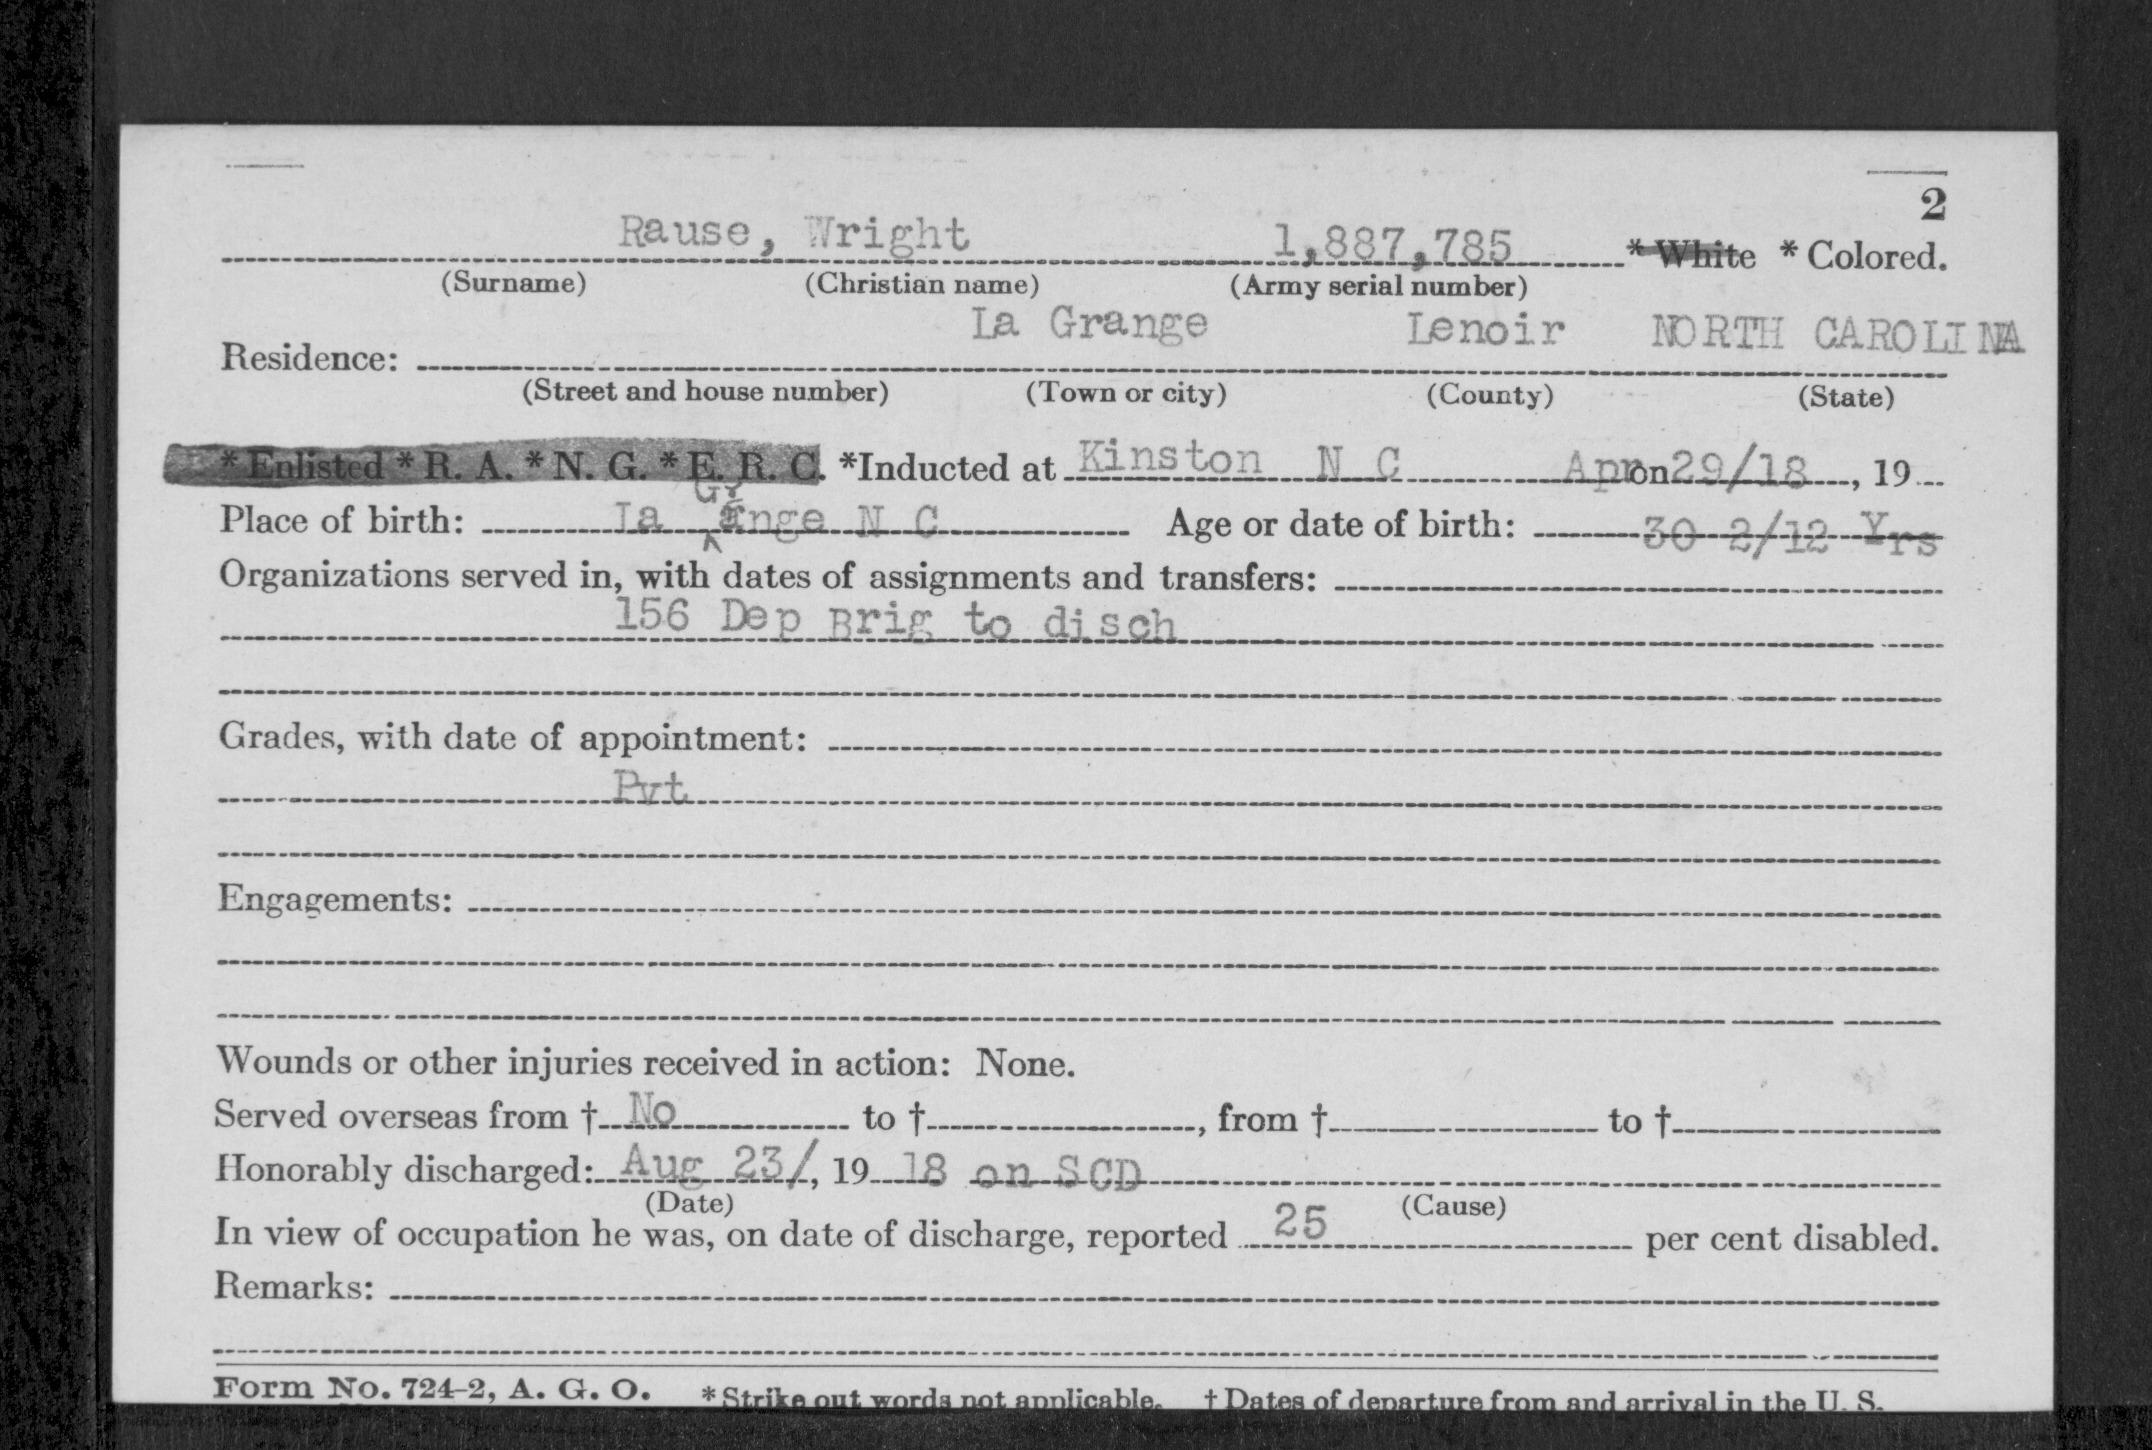 2
Rause, Wright 1,887,785 * White * Colored.
(Surname) (Christian name) (Army serial number)
La Grange Lenoir NORTH CAROLINA
Residence:
(Street and house number) (Town or city) (County) (State)
* Enlisted * R. A. * N. G. * E. R. C. *Inducted at Kinston N C Apr on 29/18, 19
Place of birth: La Grange N C Age or date of birth: 30 2/12 Yrs
Organizations served in, with dates of assignments and transfers:
156 Dep Brig to disch
Grades, with date of appointment:
Pvt
Engagements:
Wounds or other injuries received in action: None.
Served overseas from † No to †, from † to †
Honorably discharged: Aug 23/, 19 18 on SCD
(Date) (Cause)
In view of occupation he was, on date of discharge, reported 25 per cent disabled.
Remarks:
Form No. 724-2, A. G. O. * Strike out words not applicable. † Dates of departure from and arrival in the U. S.